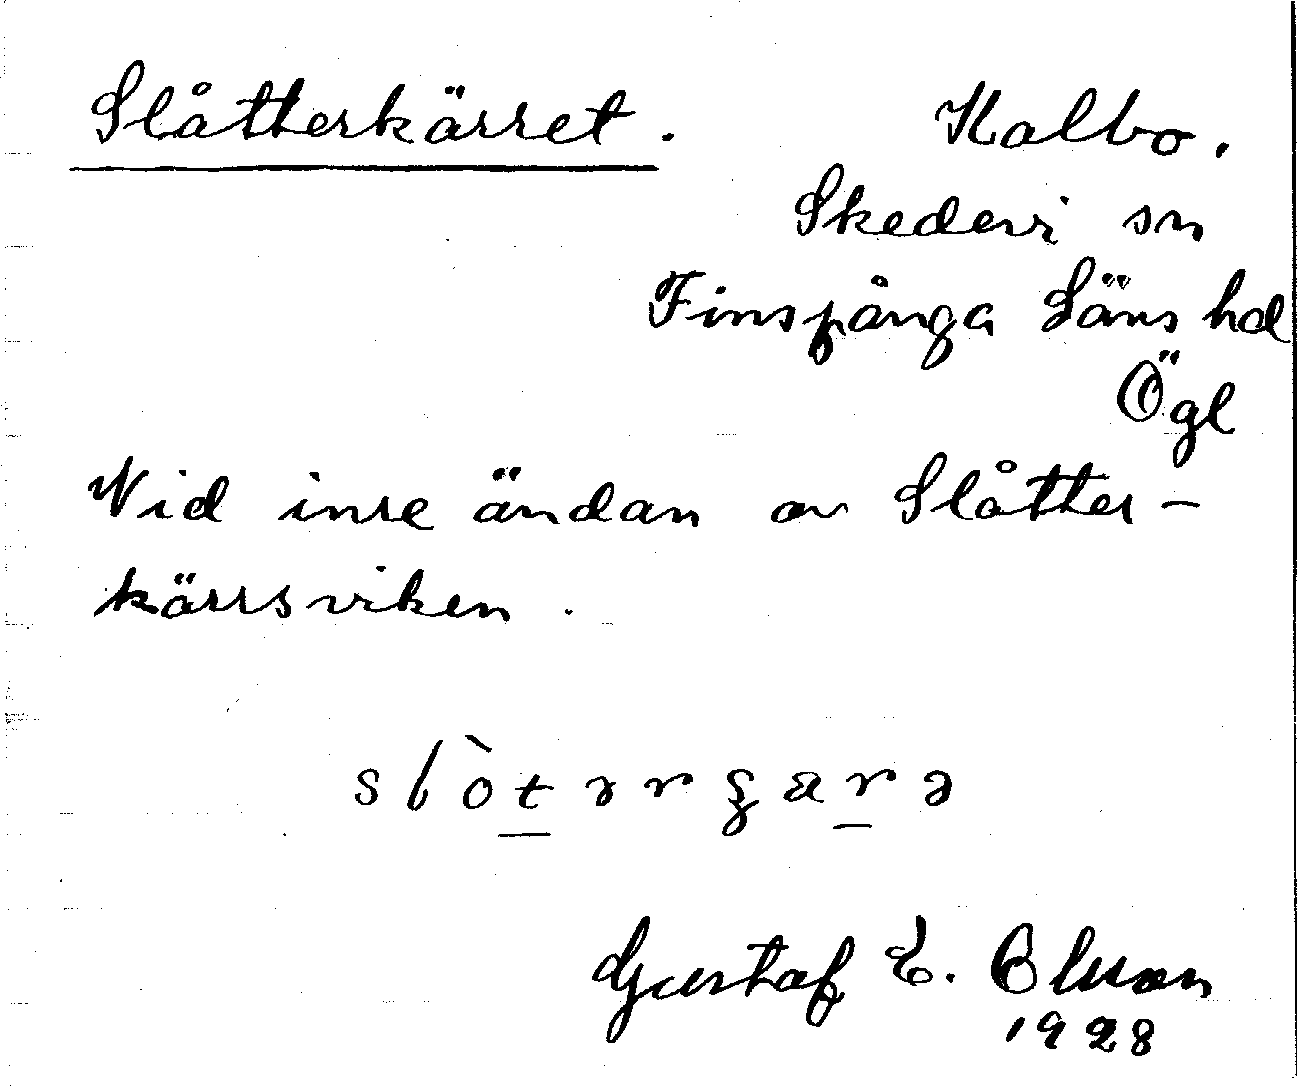 Slåtterkärret. Kalbo.
Skedevi sn
Finspånga Läns hd
Ögl
Vid inre ändan av Slåtter-
kärrsviken.
Gustaf E. Olsson
1928